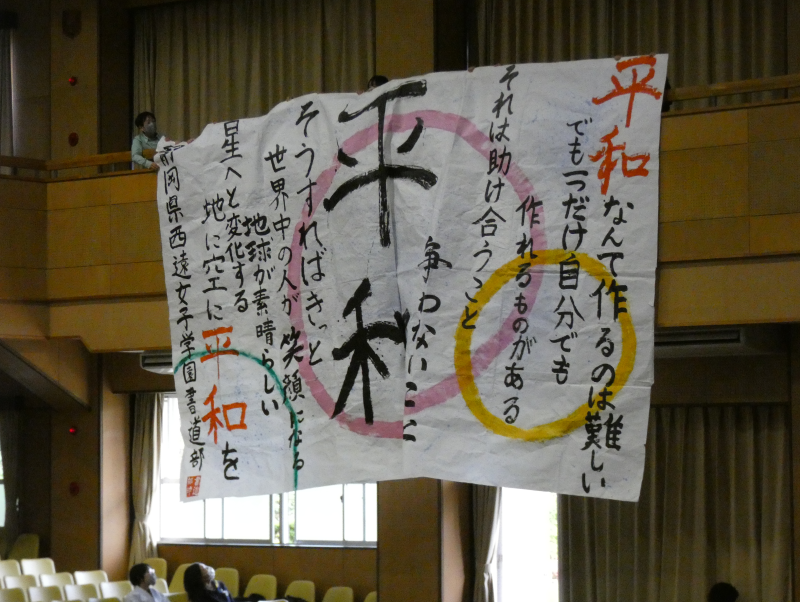 平和なんて作るのは難しい
でも一つだけ自分でも
作れるものがある
それは助け合うこと
争わないこと
平和
そうすればきっと
世界中の人が笑顔になる
地球が素晴らしい
星へと変化する
地に空に平和を
静岡県西遠女子学園書道部